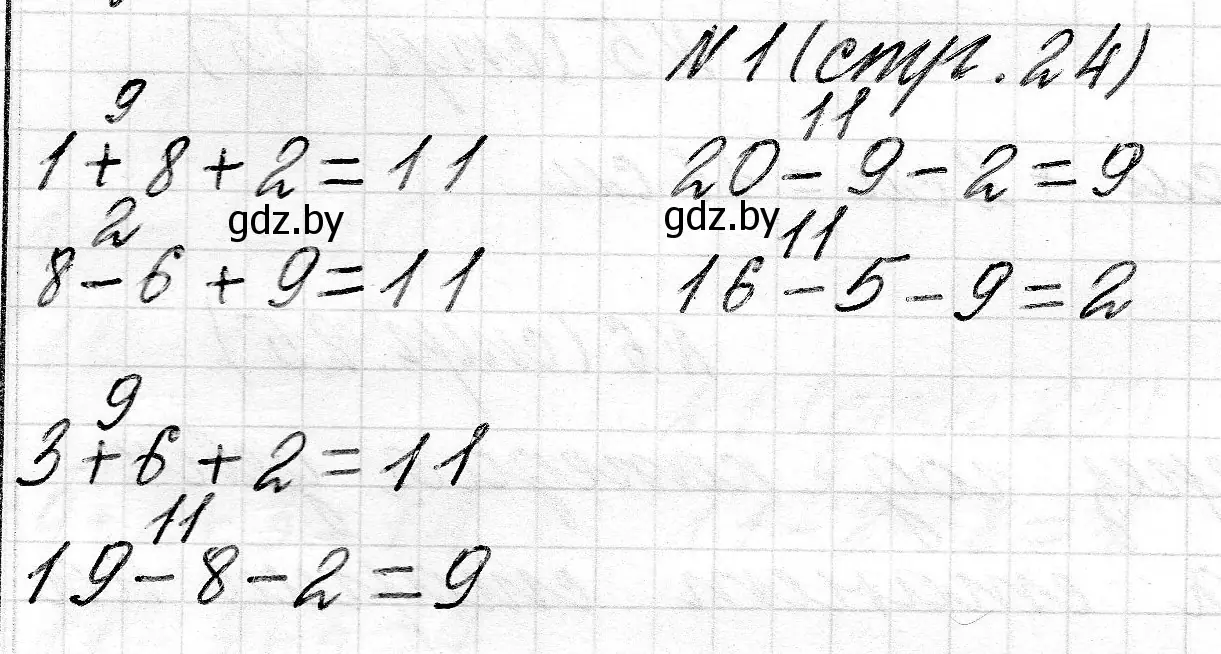 №1 (стр. 24)
9
1 + 8 + 2 = 11
11
20 - 9 - 2 = 9
gdz.by
gdz.by
2
8 - 6 + 9 = 11
11
16 - 5 - 9 = 2
9
3 + 6 + 2 = 11
11
19 - 8 - 2 = 9